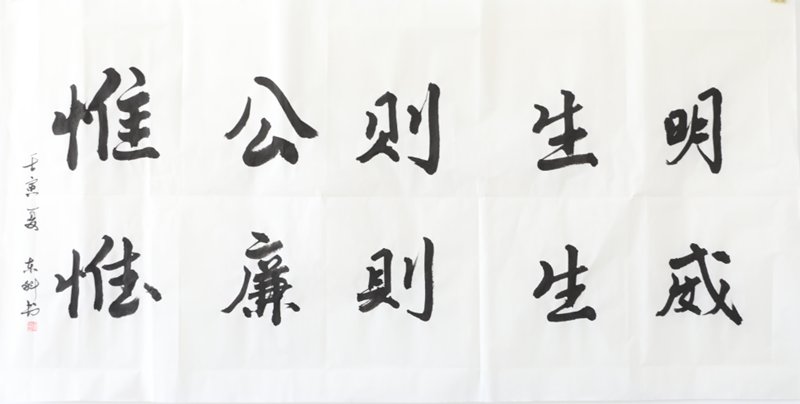 惟公则生明
惟廉则生威
壬寅夏 东科书